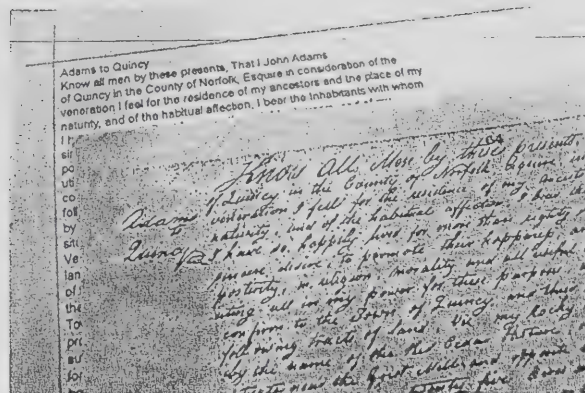 Adams to Quincy
Know all men by these presents, That I John Adams
of Quincy in the County of Norfolk, Esquire in consideration of the
veneration I feel for the residence of my ancestors and the place of my
naturity, and of the habitual affection, I bear the Inhabitants with whom
I h
sir
po
uti
co
foll
by
situ
Ve
lan
of
the
To
pro
su
for
Know All Men by these Presents,
of Quincy in the County of Norfolk Esquire
Adams
veneration I feel for the residence of my
to
naturity, and of the habitual affection I bear
Quincy
I have so happily lived for more than eighty
desire to promote their happiness,
posterity, in religion, morality and all useful
uting all in my power for these purposes
to the Town of Quincy and their
following tracts of land. my Rocky
by the name of the Red Cedar Pasture
near the Grist Mills and opposite
five